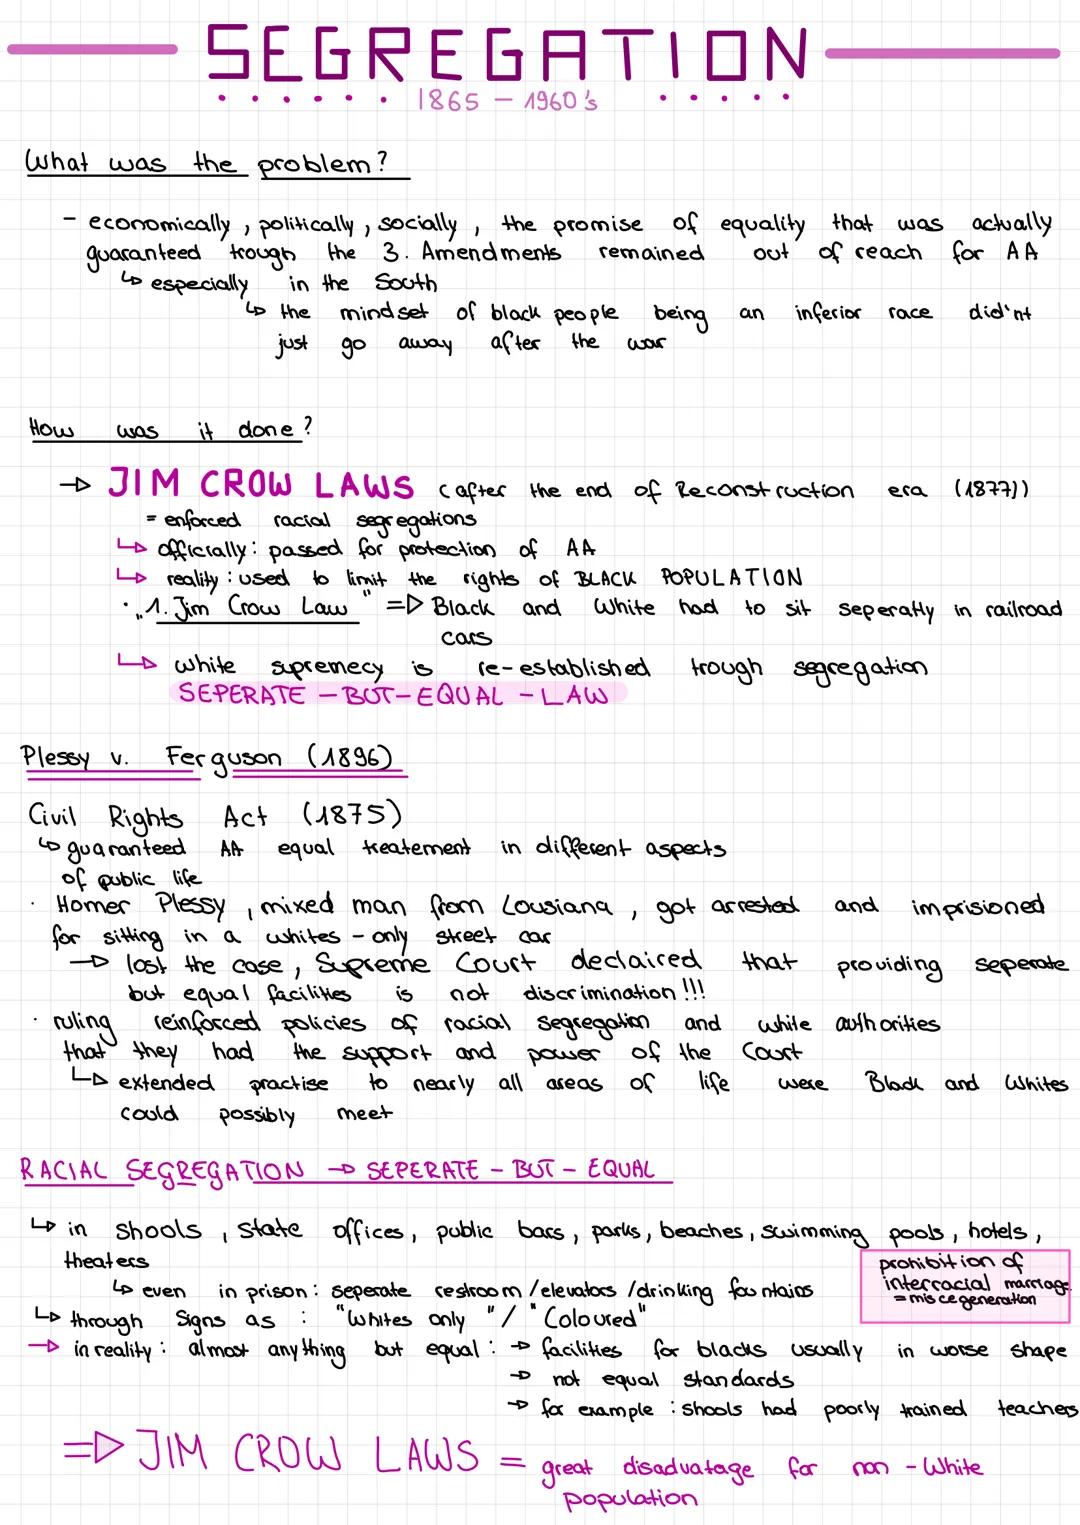 SEGREGATION
1865 – 1960's
What was the problem?
- economically, politically, socially, the promise of equality that was actually
guaranteed trough the 3. Amendments remained out of reach for AA
↳ especially in the South
↳ the mindset of black people being an inferior race did'nt
just go away after the war
How was it done?
→ JIM CROW LAWS (after the end of Reconstruction era (1877))
= enforced racial segregations
↳ officially: passed for protection of AA
↳ reality: used to limit the rights of BLACK POPULATION
· „1. Jim Crow Law" => Black and White had to sit seperatly in railroad
cars
↳ white supremecy is re-established trough segregation
SEPERATE-BUT-EQUAL-LAW
Plessy v. Ferguson (1896)
Civil Rights Act (1875)
↳ guaranteed AA equal treatement in different aspects
of public life
· Homer Plessy, mixed man from Lousiana, got arrested and imprisioned
for sitting in a whites-only street car
→ lost the case, Supreme Court declaired that providing seperate
but equal facilities is not discrimination!!!
· ruling reinforced policies of racial segregation and white authorities
that they had the support and power of the Court
↳ extended practise to nearly all areas of life were Black and Whites
could possibly meet
RACIAL SEGREGATION → SEPERATE-BUT-EQUAL
↳ in shools, state offices, public bars, parks, beaches, swimming pools, hotels,
theaters
↳ even in prison: seperate restroom/elevators/drinking fountains
prohibition of
interracial marriage
= miscegeneration
↳ through signs as : "Whites only"/"Coloured"
→ in reality: almost anything but equal: → facilities for blacks usually in worse shape
→ not equal standards
→ for example: shools had poorly trained teachers
=> JIM CROW LAWS = great disadvatage for non-White
population